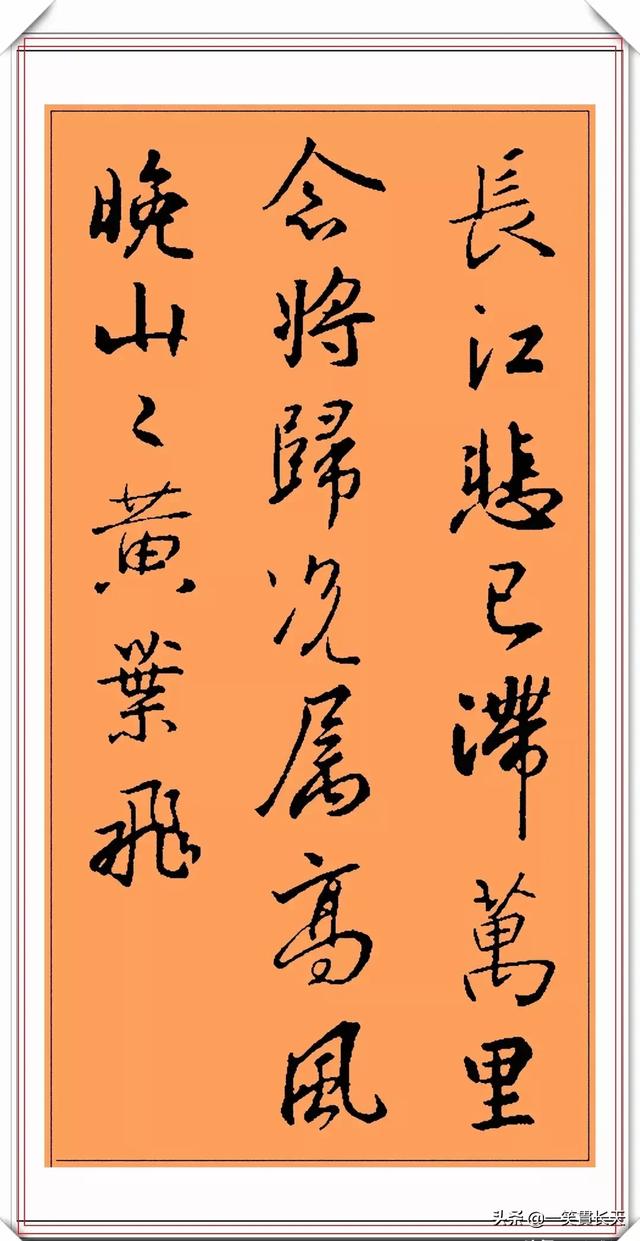 長江悲已滯萬里
念將歸况属高風
晚山〻黄葉飛
头条@一笑贯长天